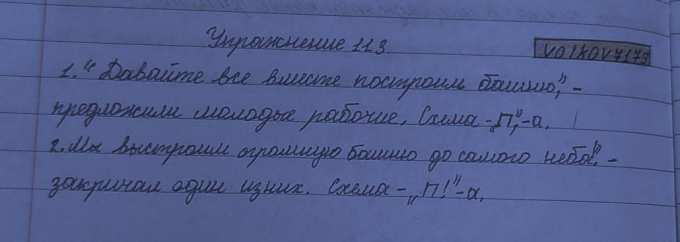 Упражнение 113
VOLKOV7173
1. "Давайте все вместе построим башню," -
предложили молодые рабочие. Схема - „П,"-а.
2. Мы выстроим огромную башню до самого неба!" -
закричал один из них. Схема - „П!"-а.